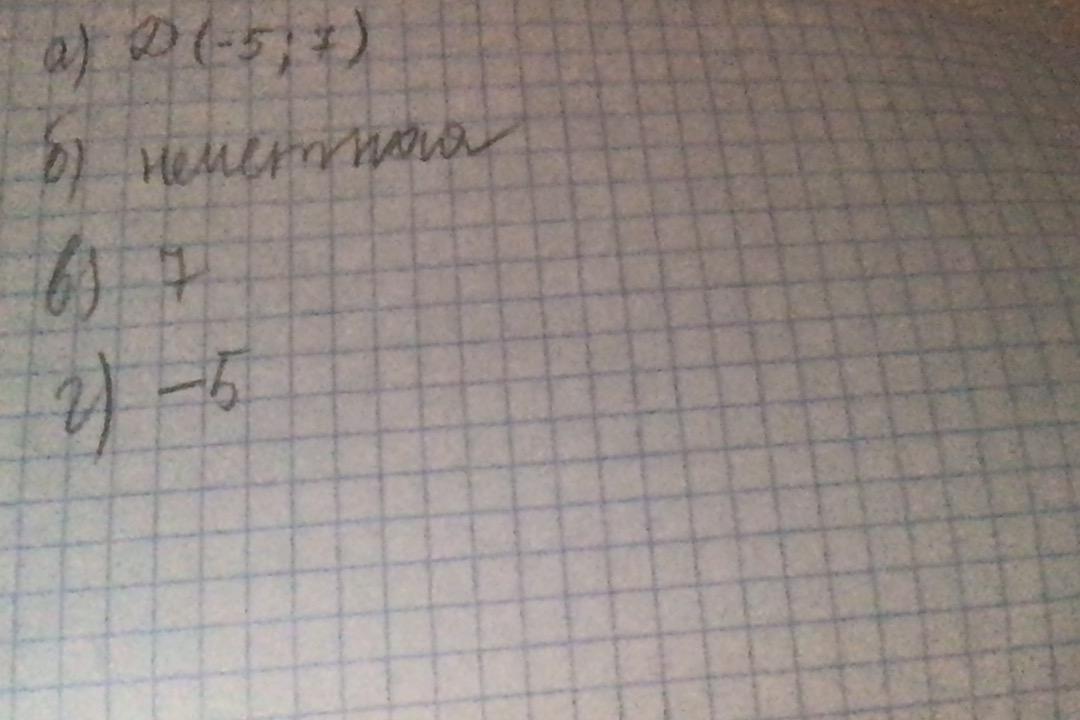 а) D (-5; 7)
б) нечетная
в) 7
г) -5